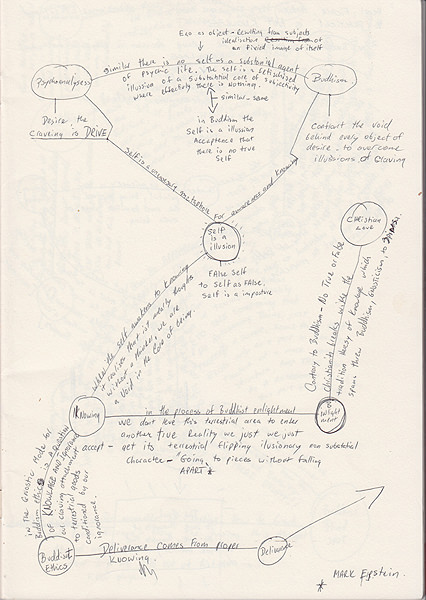 Ego as object - resulting from subjects
idealisation
an fixed image of itself
similar there is no self as a substantial agent
of psychic life. The self is a fetishized
illusion of a substantial core of subjectivity
where effectively there is nothing.
Psychoanalysis
Buddhism
similar - same
Desire, the
craving is DRIVE
in Buddhism the
Self is a illusion
Acceptance that
there is no true
Self
Confront the void
behind every object of
desire - to overcome
illusions of craving
Self is a necessary
for awareness and knowing
Self
is a
illusion
Christian
Love
FALSE Self
to Self as FALSE.
Self is a imposture
when the self awakens to knowing
it realises that it merely thoughts
without a thinker, we are
a void in the core of being.
Contrary to Buddhism - No True or False
Christianity breaks with the
tradition theory of knowledge which
spans them Buddhism, Gnosticism, to
Knowing
Enlight
ment
in the process of Buddhist enlightment
we dont leave this terrestrial area to enter
another true Reality we just we just
accept - get its terrestrial flipping ilusionary non substantial
character - "Going to pieces without falling
APART *
in the Gnostic mode for
Buddism ethics is a question
of KNOWLAGE AND Ignorance
our craving attachment
to terrestrial goods
conditioned by our
ignorance.
Buddhist
Ethics
Deliverance comes from proper
Knowing.
Deliverance
* MARK Epstein.